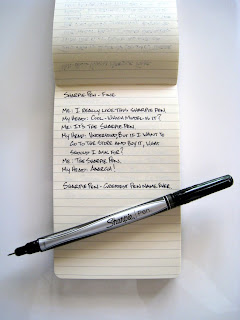 SHARPIE PEN - FINE
ME: I REALLY LIKE THIS SHARPIE PEN
MY HEAD: COOL - WHICH MODEL IS IT?
ME: IT'S THE SHARPIE PEN
MY HEAD: UNDERSTAND BUT IF I WANT TO
GO TO THE STORE AND BUY IT, WHAT
SHOULD I ASK FOR?
ME: THE SHARPIE PEN.
MY HEAD: AAARGH!
SHARPIE PEN - GREATEST PEN NAME EVER
Sharpie pen